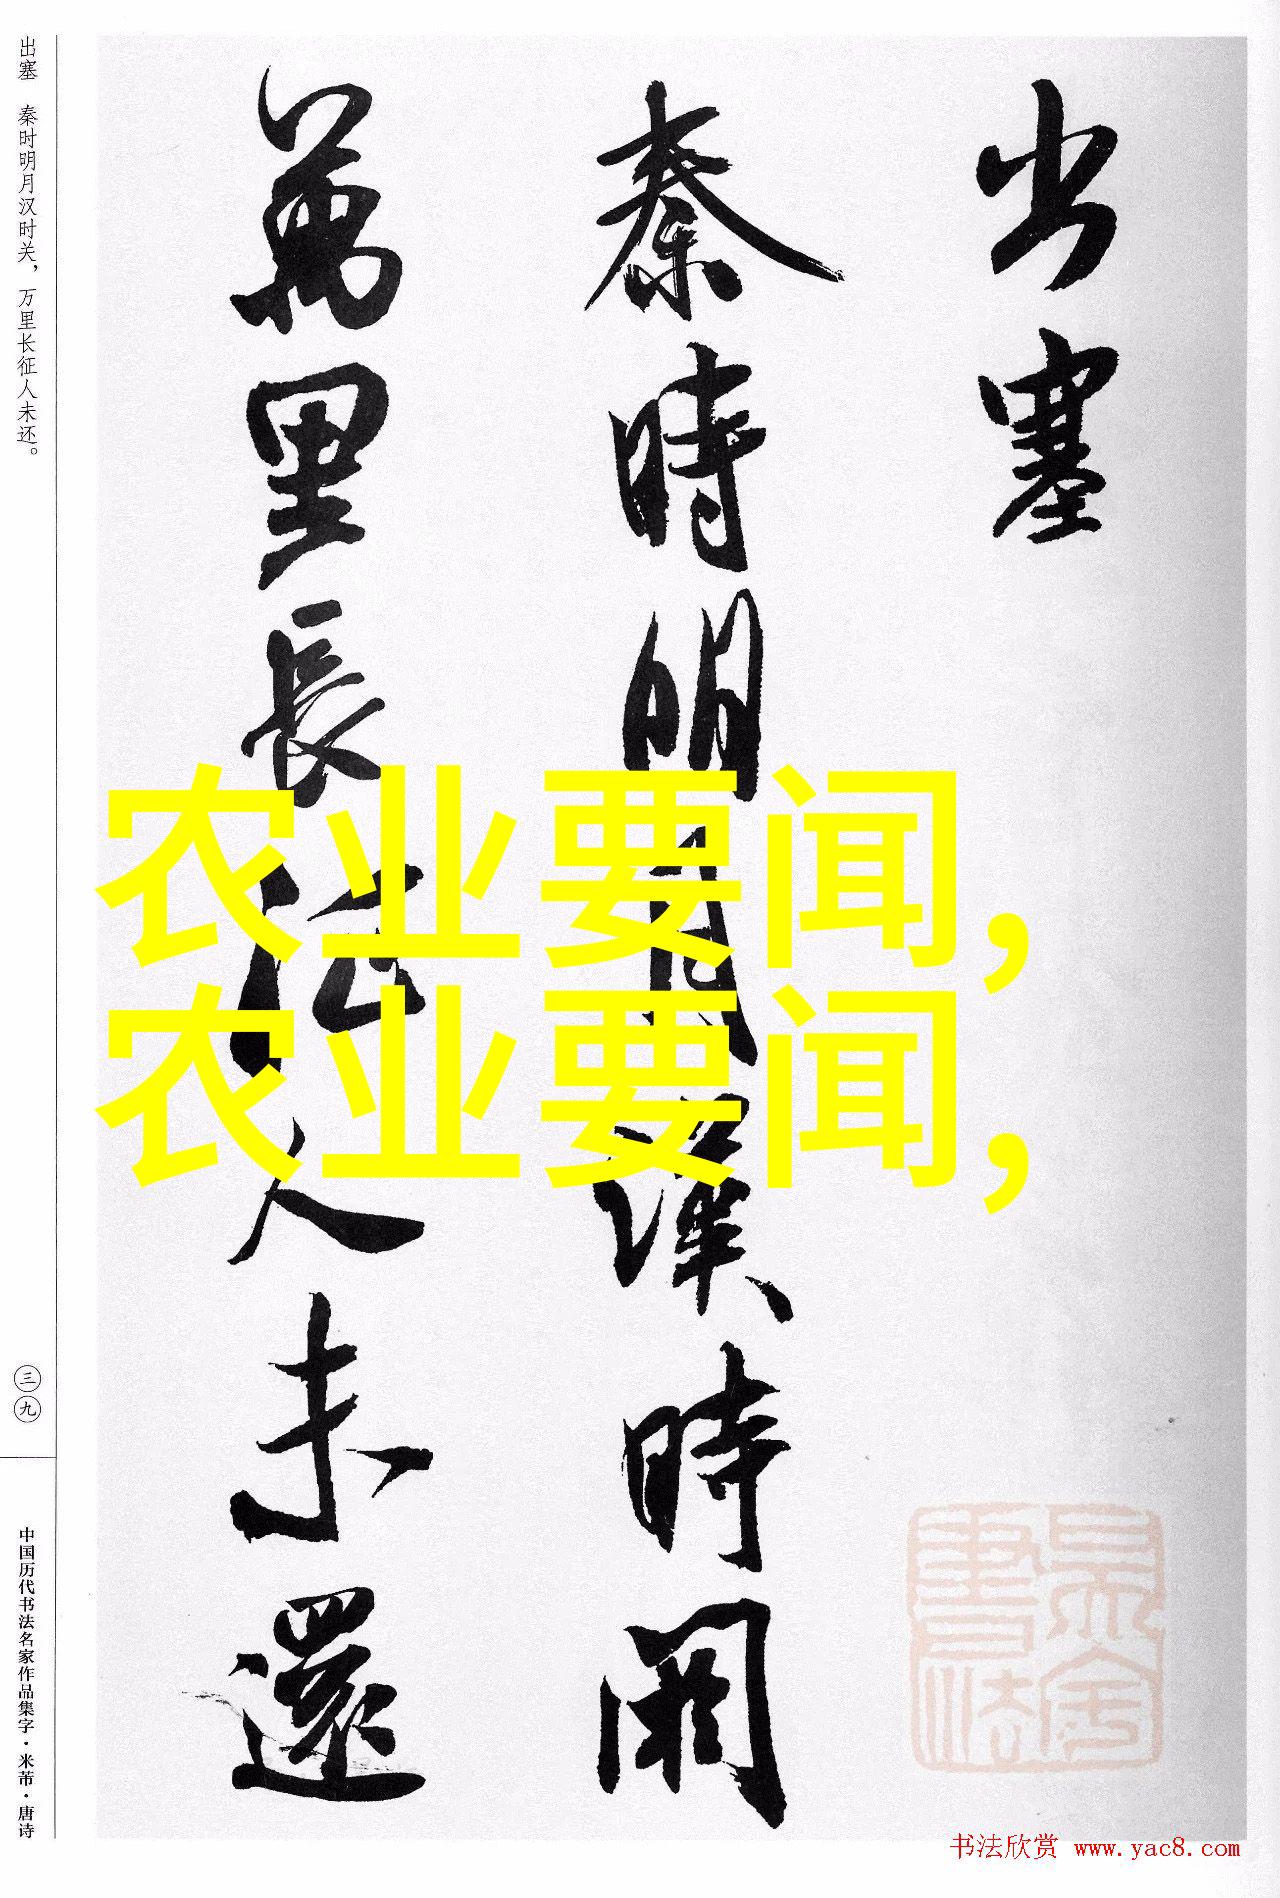 出塞
秦時明月漢時関
萬里長征人未還
出塞 秦时明月汉时关，万里长征人未还。
三九
中国历代书法名家作品集字·米芾·唐诗
农业要闻，
农业要闻，
書法欣赏 www.yac8.com